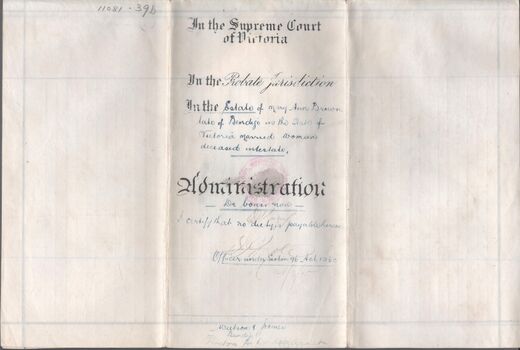 11081 · 39b
In the Supreme Court
of Victoria
In the Probate Jurisdiction
In the Estate of Mary Ann Brown
late of Bendigo in the State of
Victoria married woman
deceased intestate.
Administration
— De bonis non —
I certify that no duty is payable hereon
Officer under Section 96 Act 1060
Bendigo